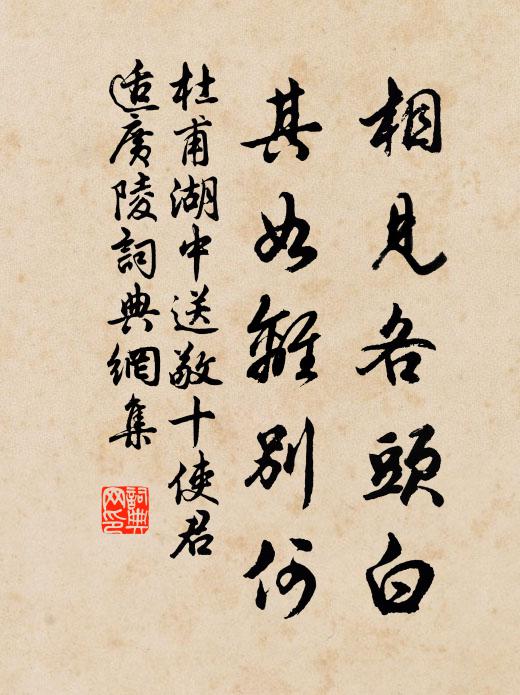 相見各頭白
其如離別何
杜甫湖中送敬十使君
适廣陵詞典網集
詞典网印